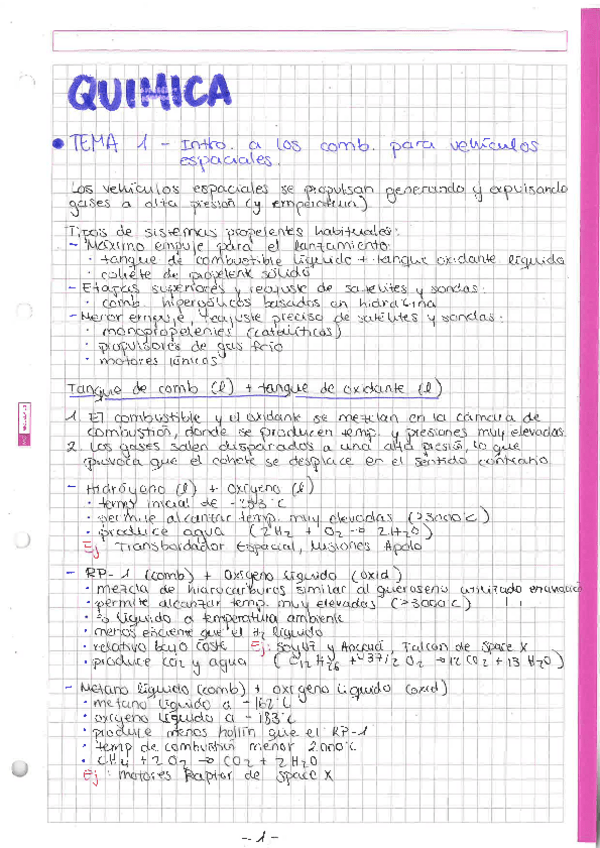 QUIMICA
• TEMA 1 - Intro. a los comb. para vehículos
espaciales.
Los vehículos espaciales se propulsan generando y expulsando
gases a alta presión (y empendrium)
Tipos de sistemas propelentes habituales:
- Máximo empuje para el lanzamiento
· tanque de combustible líquido + tanque oxidante líquido
· cohete de propelente sólido
- Etapas superiores y reajuste de satélites y sondas:
· comb. hipergólicos basados en hidracina
- Menor empuje, reajuste preciso de satélites y sondas:
· monopropelentes (catalíticos)
· propulsores de gas frío
· motores iónicos
Tanque de comb (l) + tanque de oxidante (l)
1. El combustible y el oxidante se mezclan en la cámara de
combustión, donde se producen temp. y presiones muy elevadas.
2. Los gases salen disparados a una alta presión, lo que
provoca que el cohete se desplace en el sentido contrario
- Hidrógeno (l) + Oxígeno (l)
· temp inicial de °C
· permite alcanzar temp. muy elevadas (>3000°C)
· produce agua (2H2 + O2 → 2H2O)
Ej Transbordador Espacial, Misiones Apolo
- RP-1 (comb) + Oxígeno líquido (oxid)
· mezcla de hidrocarburos similar al queroseno utilizado
· permite alcanzar temp. muy elevadas (>3000°C)
· es líquido a temperatura ambiente
· menos eficiente que el H2 líquido
· relativo bajo coste Ej: Soyuz y Falcon de Space X
· produce CO2 y agua (C12H26 + 37/2 O2 → 12 CO2 + 13 H2O)
- Metano líquido (comb) + oxígeno líquido (oxid)
· metano líquido a -162°C
· oxígeno líquido a -183°C
· produce menos hollín que el RP-1
· temp de combustión menor 2.000°C
· CH4 + 2O2 → CO2 + 2H2O
Ej: motores Raptor de Space X
- 1 -